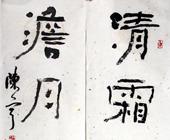 清霜
澹月